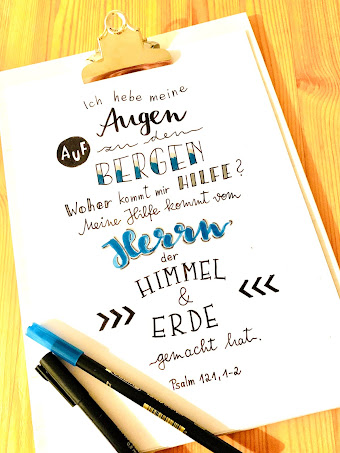 Ich hebe meine
Augen
AUF zu den
BERGEN
Woher kommt mir HILFE?
Meine Hilfe kommt vom
Herrn
der
HIMMEL
&
ERDE
gemacht hat.
Psalm 121, 1-2